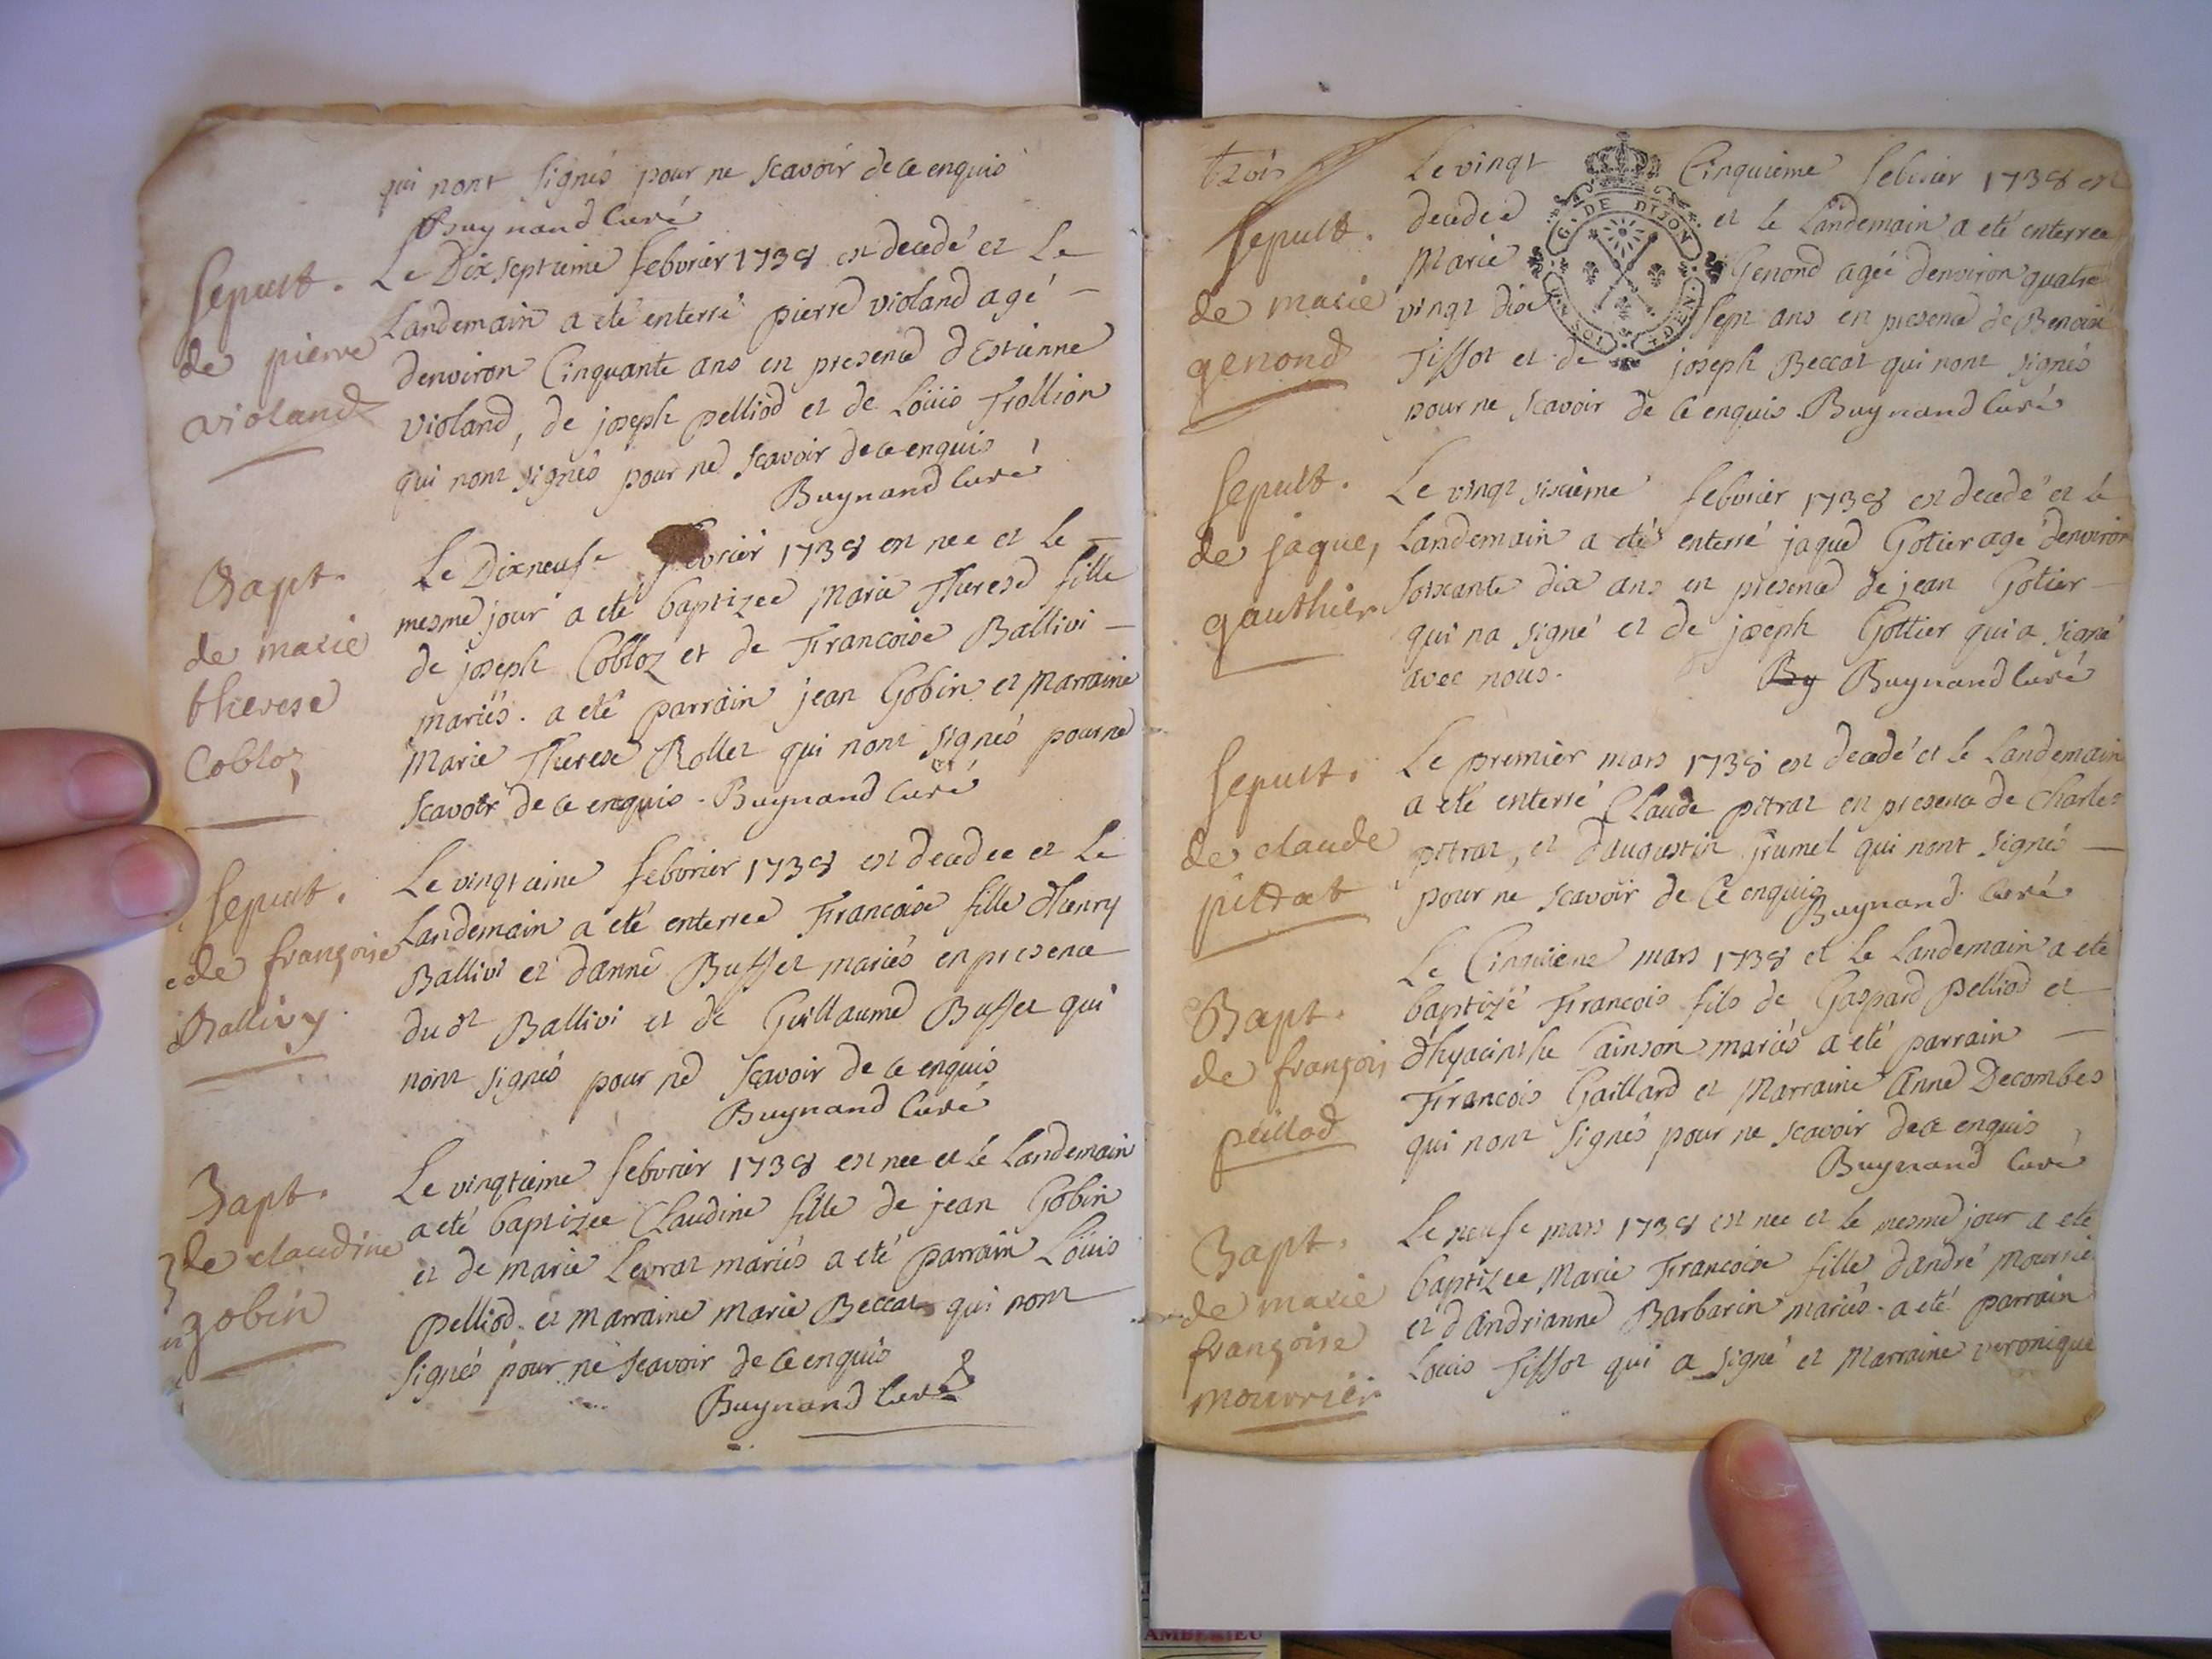 qui nont signés pour ne scavoir de ce enquis
Buynand Curé
Sepult.
de pierre
violand
Le Dix septieme febvrier 1738 est decedé et Le
Landemain a eté enterré pierre violand agé
denviron Cinquante ans en presence dEstienne
violand, de joseph pelliod et de Loüis Trollion
qui nont signés pour ne scavoir de ce enquis
Buynand Curé
Bapt.
de marie
therese
Cobloz
Le Dixneufe fevrier 1738 est nee et le
mesme jour a eté baptizee Marie Therese fille
de joseph Cobloz et de Francoise Ballivi
mariés. a eté parrain jean Gobin et Marraine
Marie Therese Rollet qui nont signés pour ne
scavoir de ce enquis. Buynand Curé
Sepult.
de françoise
Ballivy.
Le vingtieme febvrier 1738 est decedee et Le
Landemain a eté enterree Francoise fille dhenry
Ballivi et danne Buffet mariés en presence
dudt Ballivi et de Guillaume Buffet qui
nont signés pour ne scavoir de ce enquis
Buynand Curé
Bapt.
de claudine
gobin
Le vingtieme febvrier 1738 est nee et le Landemain
a eté baptizee Claudine fille de jean Gobin
et de marie Levrat mariés a eté parrain Loüis
pelliod. et marraine marie Beccat qui nont
signés pour ne scavoir de ce enquis
Buynand Curé
trois
G. DE DIJON
Sepult.
de marie
genond
Le vingt Cinquieme febvrier 1738 est
decedee et le Landemain a eté enterree
Marie Genond agée denviron quatre
vingt dix sept ans en presence de Benoist
Tissot et de joseph Beccat qui nont signés
pour ne scavoir de ce enquis. Buynand Curé
Sepult.
de jaque,
gauthier
Le vingt sixieme febvrier 1738 est decedé et le
Landemain a eté enterré jaque Gotier agé denviron
soixante dix ans en presence de jean Gotier
qui na signé et de joseph Gottier qui a signé
avec nous. By Buynand Curé
Sepult.
de claude
pittrat
Le premier mars 1738 est decedé et le Landemain
a eté enterré Claude pitrat en presence de Charles
pitrat, et daugustin Grumel qui nont signé
pour ne scavoir de Ce enquis Buynand Curé
Bapt.
de françois
peillod
Le Cinquieme mars 1738 et le Landemain a ete
baptizé Francois fils de Gaspard pelliod et
dhyacinthe Cainson mariés a eté parrain
Francois Gaillard et Marraine Anne Decombes
qui nont signés pour ne scavoir de ce enquis
Buynand Curé
Bapt.
de marie
françoise
mouvrier
Le neufe mars 1738 est nee et le mesme jour a eté
baptizee Marie Francoise fille dandré Mourrié
et dandrianne Barbarin mariés. a eté parrain
Louis Tissot qui a signé et Marraine veronique
AMBERIEU